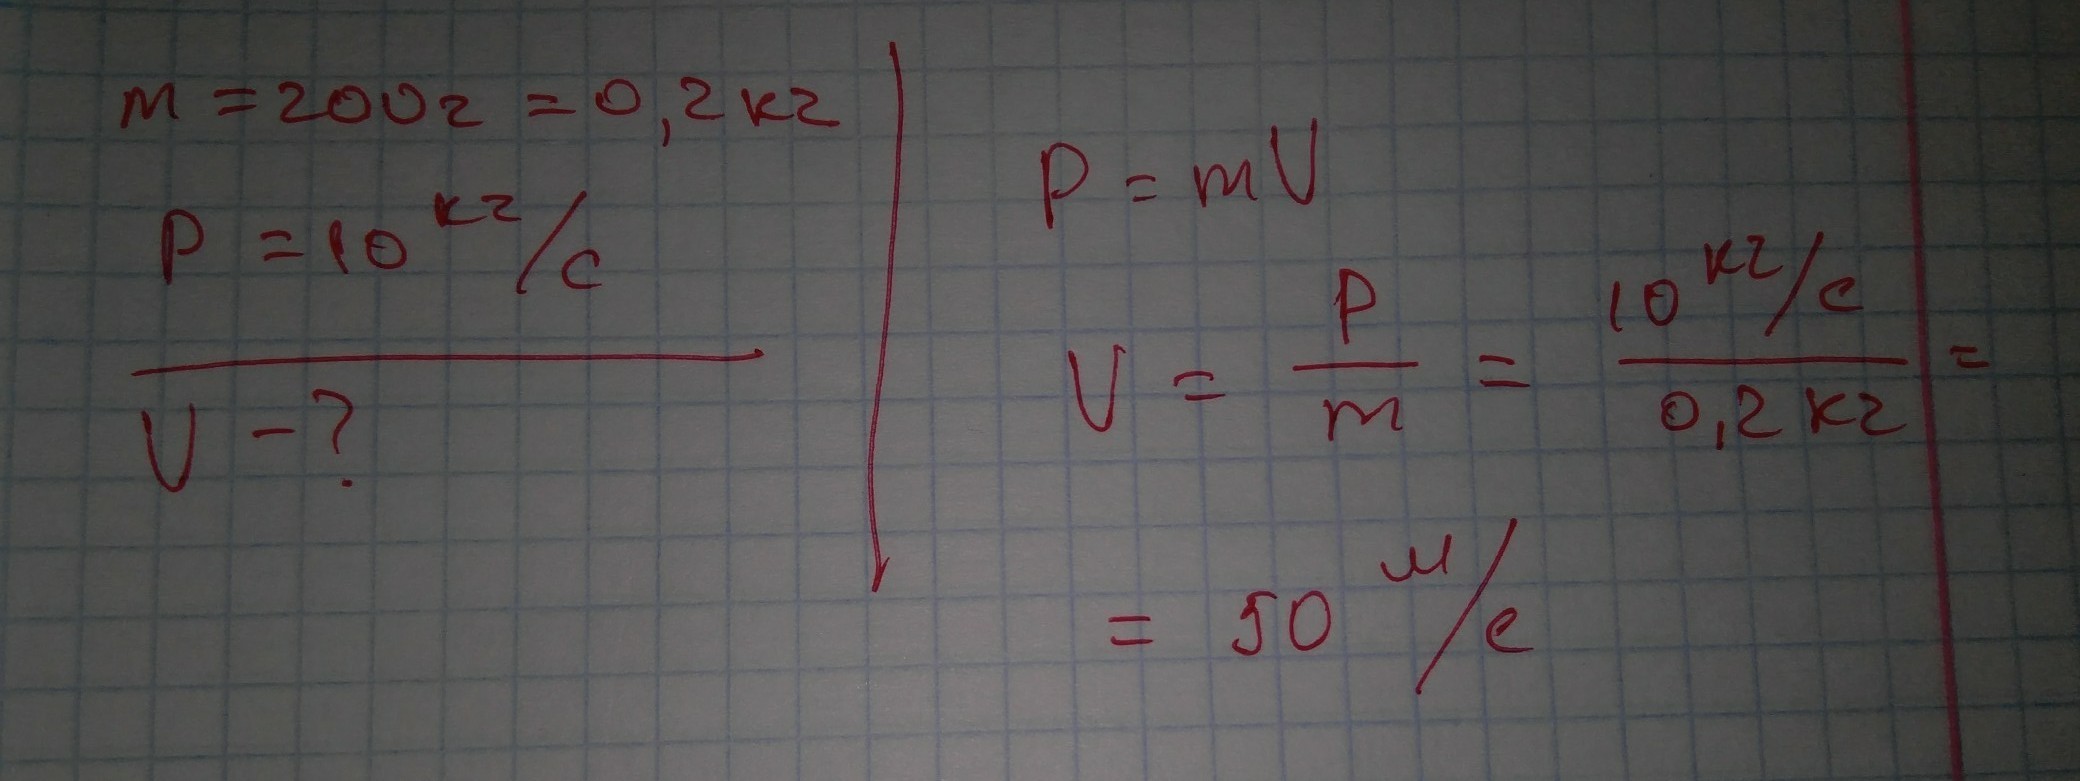 m = 200г = 0,2 кг
P = 10 кг/с
V - ?
P = mV
V = P/m = 10 кг/с / 0,2 кг =
= 50 м/с